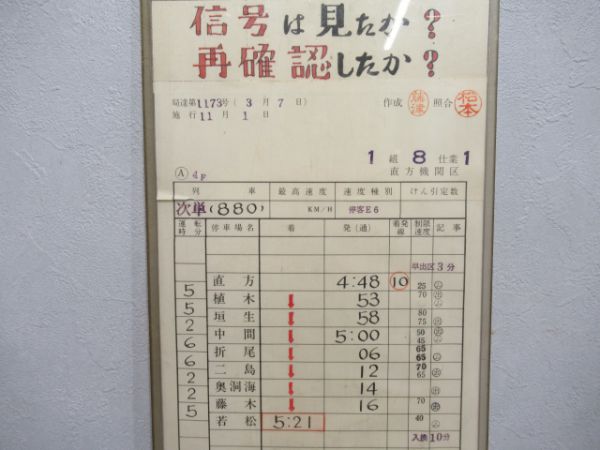 信号は見たか?
再確認したか?
局達第1173号(3月7日) 作成 照合 松本
施行11月1日
1組8仕業1
直方機関区
A dp
列車 最高速度 速度種別 けん引定数
次単(880) KM/H 停客E6
運転時分 停車場名 着 発(通) 着発線 制限速度 記事
早出区3分
直方 4:48 10 25
5 植木 ↓ 53 70
5 垣生 ↓ 58 80 75
2 中間 ↓ 5:00 50 45
6 折尾 ↓ 06 65 65
6 二島 ↓ 12 70 65
2 奥洞海 ↓ 14
2 藤木 ↓ 16 70
5 若松 5:21 40
入換10分